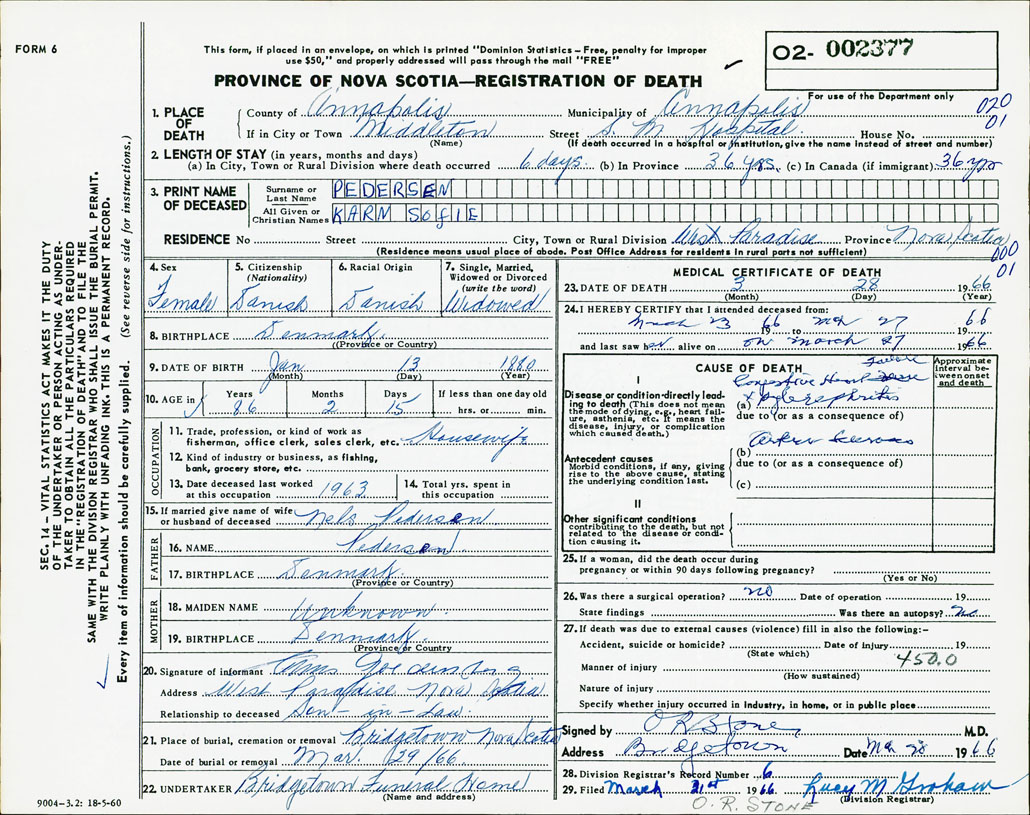 FORM 6
This form, if placed in an envelope, on which is printed "Dominion Statistics – Free, penalty for improper
use $50," and properly addressed will pass through the mail "FREE"
O2- 002377
PROVINCE OF NOVA SCOTIA—REGISTRATION OF DEATH
For use of the Department only
020
01
1. PLACE OF DEATH
County of Annapolis Municipality of Annapolis
If in City or Town Middleton Street S. M. Hospital House No.
(Name) (If death occurred in a hospital or institution, give the name instead of street and number)
2. LENGTH OF STAY (in years, months and days)
(a) In City, Town or Rural Division where death occurred 6 days (b) In Province 36 yrs. (c) In Canada (if immigrant) 36 yrs
3. PRINT NAME OF DECEASED
Surname or Last Name PEDERSEN
All Given or Christian Names KARM SofIE
RESIDENCE No Street City, Town or Rural Division West Paradise Province Nova Scotia
(Residence means usual place of abode. Post Office Address for residents in rural parts not sufficient)
000
01
4. Sex Female
5. Citizenship (Nationality) Danish
6. Racial Origin Danish
7. Single, Married, Widowed or Divorced (write the word) Widowed
8. BIRTHPLACE Denmark
(Province or Country)
9. DATE OF BIRTH Jan 13 1880
(Month) (Day) (Year)
10. AGE in Years 86 Months 2 Days 15 If less than one day old hrs. or min.
OCCUPATION
11. Trade, profession, or kind of work as
fisherman, office clerk, sales clerk, etc. Housewife
12. Kind of industry or business, as fishing,
bank, grocery store, etc.
13. Date deceased last worked at this occupation 1963
14. Total yrs. spent in this occupation
15. If married give name of wife
or husband of deceased Nels Pedersen
FATHER
16. NAME Pedersen
17. BIRTHPLACE Denmark
(Province or Country)
MOTHER
18. MAIDEN NAME Unknown
19. BIRTHPLACE Denmark
(Province or Country)
20. Signature of informant
Address West Paradise Nova Scotia
Relationship to deceased Son-in-Law
21. Place of burial, cremation or removal Bridgetown Nova Scotia
Date of burial or removal Mar. 29/66
22. UNDERTAKER Bridgetown Funeral Home
(Name and address)
MEDICAL CERTIFICATE OF DEATH
23. DATE OF DEATH 3 28 1966
(Month) (Day) (Year)
24. I HEREBY CERTIFY that I attended deceased from:
March 23 1966 to Mar 27 1966
and last saw her alive on March 27 1966
CAUSE OF DEATH
Approximate interval between onset and death
I
Disease or condition directly leading to death (This does not mean the mode of dying, e.g., heart failure, asthenia, etc. It means the disease, injury, or complication which caused death.)
Congestive Heart Failure
(a)
due to (or as a consequence of)
Antecedent causes
Morbid conditions, if any, giving rise to the above cause, stating the underlying condition last.
(b)
due to (or as a consequence of)
(c)
II
Other significant conditions
contributing to the death, but not related to the disease or condition causing it.
25. If a woman, did the death occur during
pregnancy or within 90 days following pregnancy?
(Yes or No)
26. Was there a surgical operation? no Date of operation 19
State findings Was there an autopsy? no
27. If death was due to external causes (violence) fill in also the following:–
Accident, suicide or homicide? Date of injury 19
(State which)
450.0
Manner of injury
(How sustained)
Nature of injury
Specify whether injury occurred in industry, in home, or in public place
Signed by O R Stone M.D.
Address Bridgetown Date Mar 28 1966
28. Division Registrar's Record Number 6
29. Filed March 31st 1966 Lucy M Graham
(Division Registrar)
O. R. STONE
9004-3.2: 18-5-60
SEC. 14 – VITAL STATISTICS ACT MAKES IT THE DUTY
OF THE UNDERTAKER OR PERSON ACTING AS UNDER-
TAKER TO OBTAIN ALL THE PARTICULARS REQUIRED
IN THE "REGISTRATION OF DEATH" AND TO FILE THE
SAME WITH THE DIVISION REGISTRAR WHO SHALL ISSUE THE BURIAL PERMIT.
WRITE PLAINLY WITH UNFADING INK. THIS IS A PERMANENT RECORD.
Every item of information should be carefully supplied. (See reverse side for instructions.)